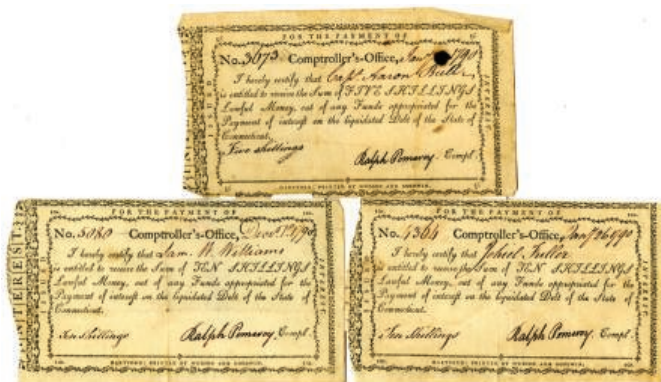 FOR THE PAYMENT OF
No. 3073 Comptroller's-Office, Jany 1790
I hereby certify that Capt Aaron
is entitled to receive the Sum of FIVE SHILLINGS
Lawful Money, out of any Funds appropriated for the
Payment of interest on the liquidated Debt of the State of
Connecticut.
Five shillings
Ralph Pomeroy Compl.
HARTFORD: PRINTED BY HUDSON AND GOODWIN.
INTEREST.
FOR THE PAYMENT OF
No. 5080 Comptroller's-Office, 1790
I hereby certify that Sam. W. Williams
is entitled to receive the Sum of TEN SHILLINGS
Lawful Money, out of any Funds appropriated for the
Payment of interest on the liquidated Debt of the State of
Connecticut.
Ten shillings
Ralph Pomeroy Compl.
HARTFORD: PRINTED BY HUDSON AND GOODWIN.
INTEREST.
FOR THE PAYMENT OF
No. 4364 Comptroller's-Office, Jany 26 1790
I hereby certify that Fuller
is entitled to receive the Sum of TEN SHILLINGS
Lawful Money, out of any Funds appropriated for the
Payment of interest on the liquidated Debt of the State of
Connecticut.
Ten Shillings
Ralph Pomeroy Compl.
HARTFORD: PRINTED BY HUDSON AND GOODWIN.
INTEREST.